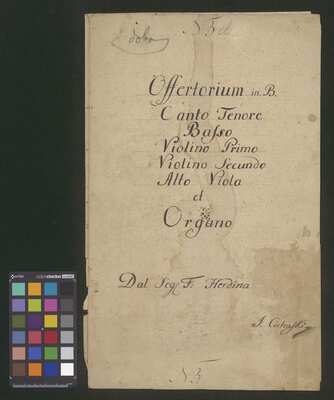 Offertorium in B.
Canto Tenore
Basso
Violino Primo
Violino Secundo
Alto Viola
et
Organo
Dal Sigl F. Herdina
N 3